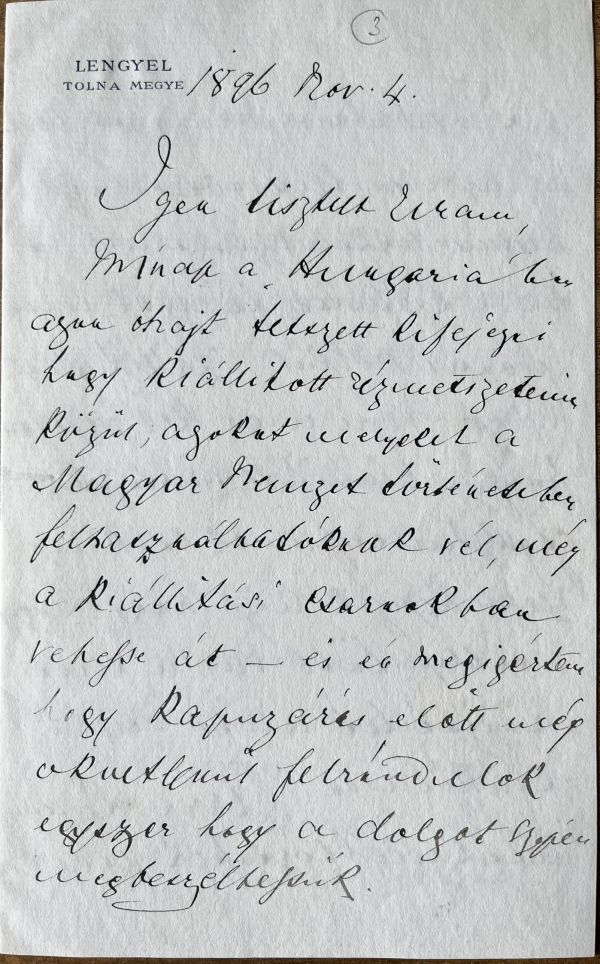 3
LENGYEL
TOLNA MEGYE
1896 Nov. 4.
Igen tisztelt Uram,
Minap a "Hungariá"ban
azon óhajt tetszett kifejezni
hogy kiállitott rézmetszeteim
közül, azokat melyeket a
Magyar Nemzet történetében
felhasználhatóknak vél, még
a kiállitási csarnokban
vehesse át – és én megigértem
hogy kapuzárás előtt még
okvetlenül felrándulok
egyszer hogy a dolgot
megbeszélhessük.